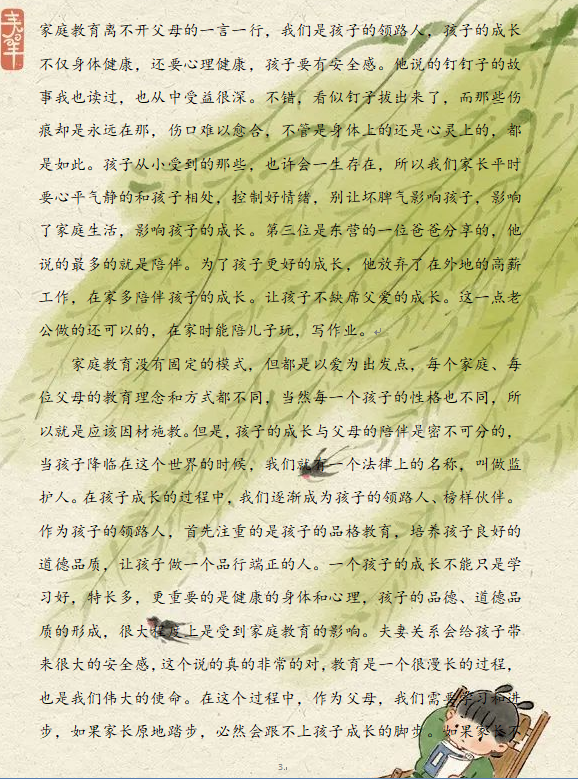 家庭教育离不开父母的一言一行，我们是孩子的领路人，孩子的成长
不仅身体健康，还要心理健康，孩子要有安全感。他说的钉钉子的故
事我也读过，也从中受益很深。不错，看似钉子拔出来了，而那些伤
痕却是永远在那，伤口难以愈合，不管是身体上的还是心灵上的，都
是如此。孩子从小受到的那些，也许会一生存在，所以我们家长平时
要心平气静的和孩子相处，控制好情绪，别让坏脾气影响孩子，影响
了家庭生活，影响孩子的成长。第三位是东营的一位爸爸分享的，他
说的最多的就是陪伴。为了孩子更好的成长，他放弃了在外地的高薪
工作，在家多陪伴孩子的成长。让孩子不缺席父爱的成长。这一点老
公做的还可以的，在家时能陪儿子玩，写作业。
家庭教育没有固定的模式，但都是以爱为出发点，每个家庭、每
位父母的教育理念和方式都不同，当然每一个孩子的性格也不同，所
以就是应该因材施教。但是，孩子的成长与父母的陪伴是密不可分的，
当孩子降临在这个世界的时候，我们就有一个法律上的名称，叫做监
护人。在孩子成长的过程中，我们逐渐成为孩子的领路人、榜样伙伴。
作为孩子的领路人，首先注重的是孩子的品格教育，培养孩子良好的
道德品质，让孩子做一个品行端正的人。一个孩子的成长不能只是学
习好，特长多，更重要的是健康的身体和心理，孩子的品德、道德品
质的形成，很大程度上是受到家庭教育的影响。夫妻关系会给孩子带
来很大的安全感，这个说的真的非常的对，教育是一个很漫长的过程，
也是我们伟大的使命。在这个过程中，作为父母，我们需要学习和进
步，如果家长原地踏步，必然会跟不上孩子成长的脚步。如果家长不
3